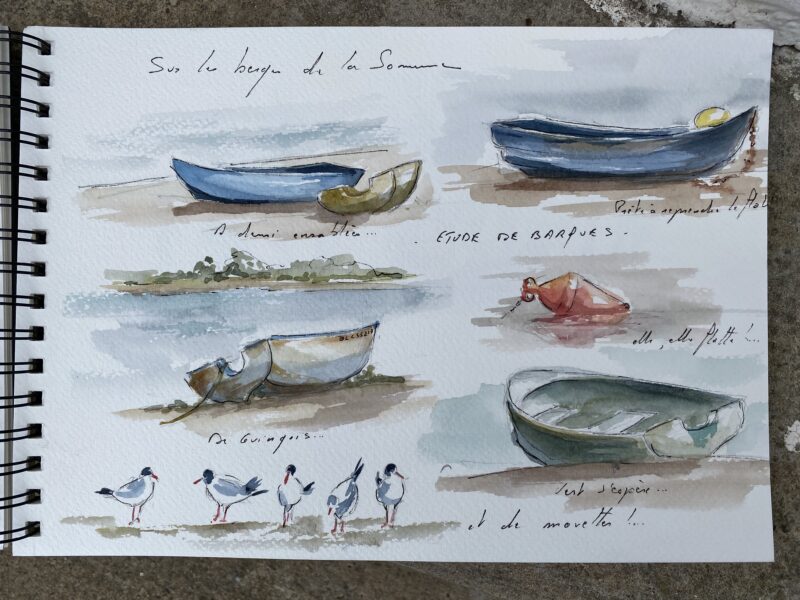 Sur les berges de la Somme
A demi ensablée...
Prête à reprendre le flot
- ETUDE DE BARQUES -
elle, elle flotte !...
De Guingois...
Vert s'espère...
et de mouettes !...